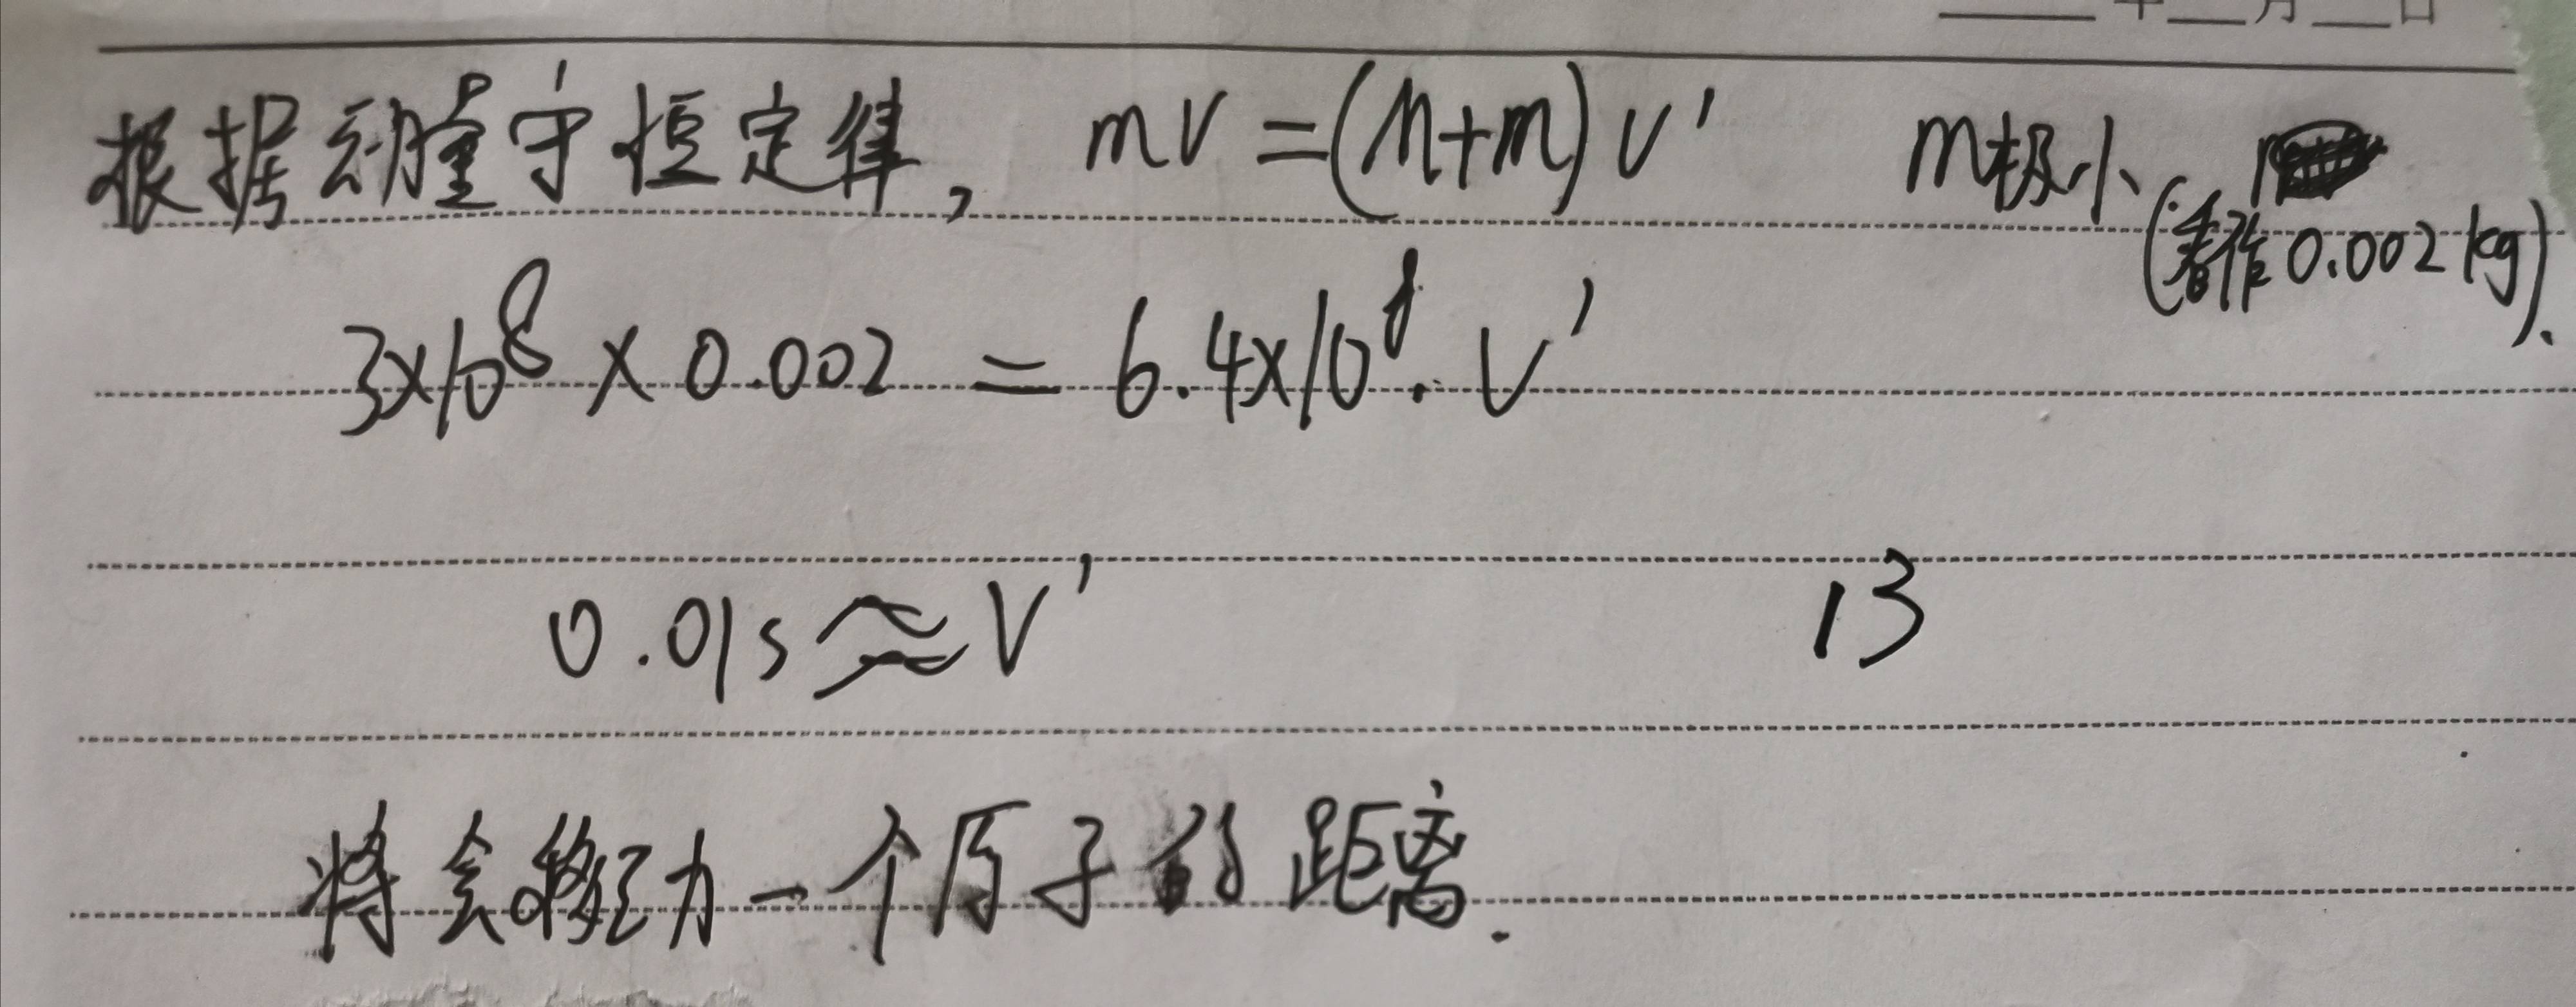 年 月 日
根据动量守恒定律, mv=(M+m)v' m极小
(看作0.002kg).
3×10⁸×0.002=6.4×10⁸·v'
0.01s≈v' 13
将会移动一个原子的距离.